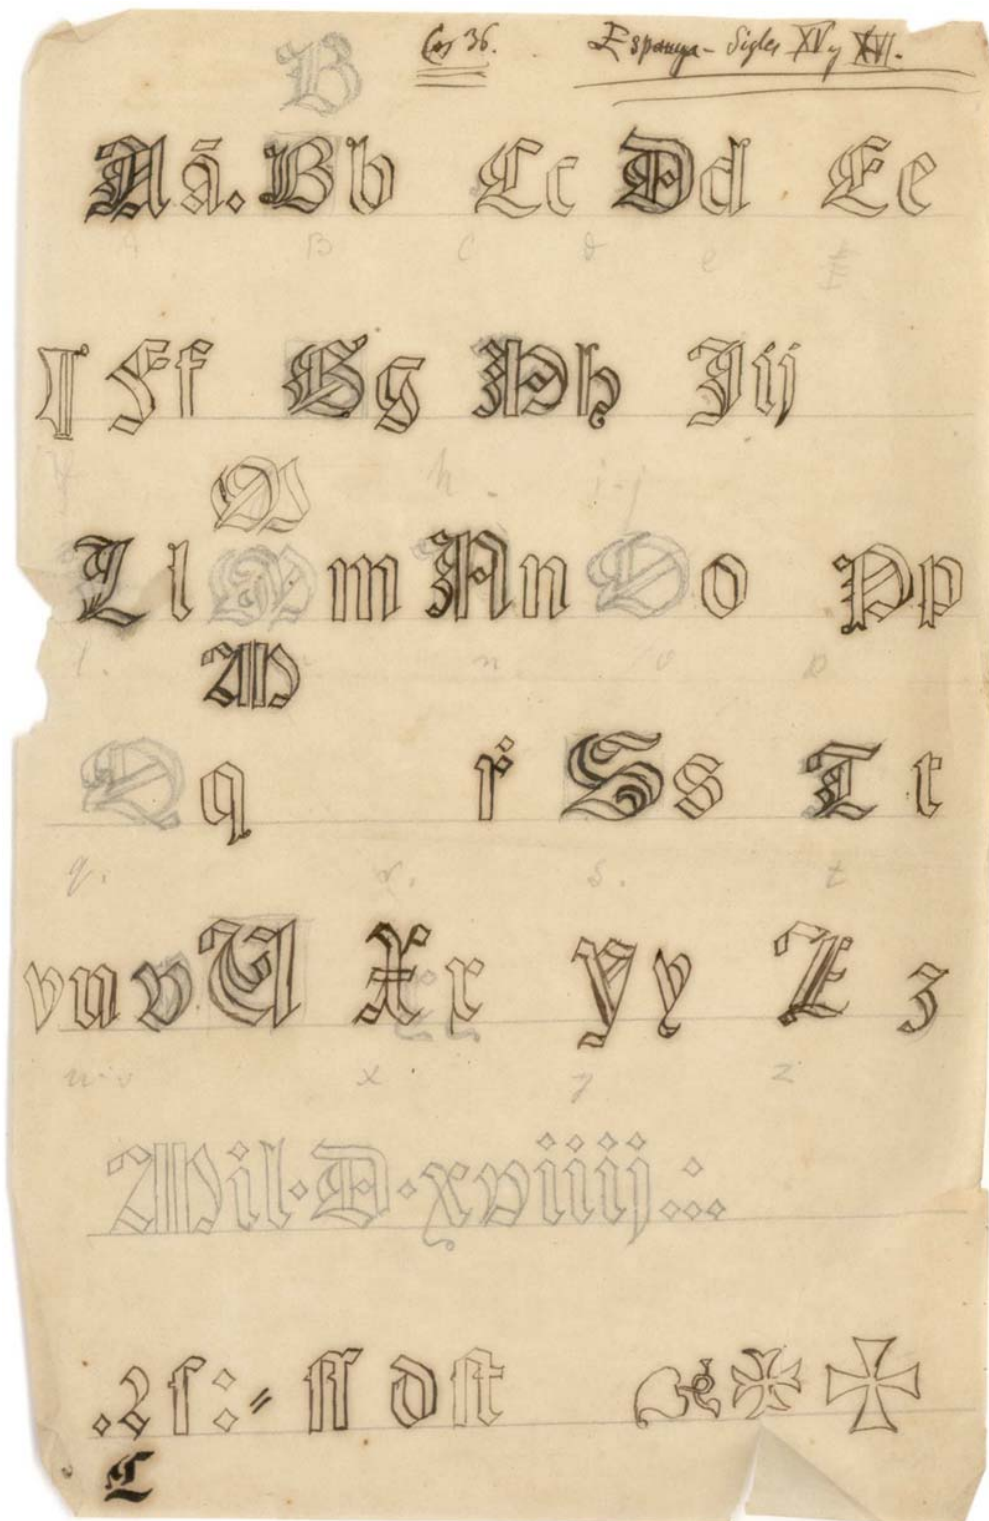 B Cos 36. Espanya - Sigles XV y XVI.
A ā. B b C c D d E e
A B C d e
¶ F f G g H h J i j
h. i-j
M
L l M m A n O o P p
l. n o p
M
Q q r S s T t
q. r. s. t
v u v U X x y y Z z
u-v x y z
Mil · D · xviiij
. ꝛ ſ : ⸗ ſſ d ſt
C